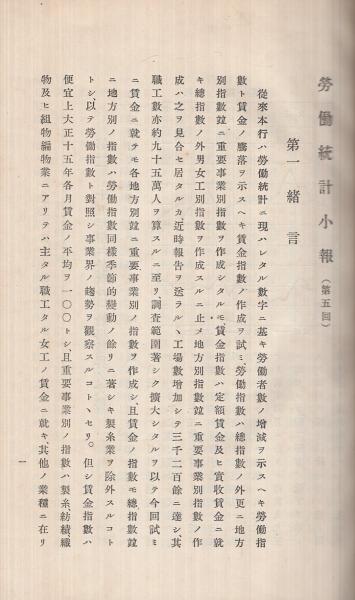 勞働統計小報(第五囘)
第一 緒言
從來本行ハ勞働統計ニ現ハレタル數字ニ基キ勞働者數ノ增減ヲ示スヘキ勞働指
數ト賃金ノ騰落ヲ示スヘキ賃金指數ノ作成ヲ試ミ、勞働指數ハ總指數ノ外更ニ地方
別指數竝ニ重要事業別指數ヲ作成シタルモ、賃金指數ハ定額賃金及ヒ實收賃金ニ就
キ總指數ノ外男女工別指數ヲ作成スルニ止メ地方別指數竝ニ重要事業別指數ノ作
成ハ之ヲ見合セ居タルカ、近時報告ヲ送ラルヽ工場數增加シテ三千二百餘ニ達シ、其
職工數亦約九十五萬人ヲ算スルニ至リ調査範圍著シク擴大シタルヲ以テ今囘試ミ
ニ賃金ニ就テモ各地方別竝ニ重要事業別ノ指數ヲ作成シ、且賃金ノ指數モ總指數竝
ニ地方別ノ指數ハ勞働指數同樣季節的變動ノ餘リニ著シキ製糸業ヲ除外スルコト
トシ、以テ勞働指數ト對照シ事業界ノ趨勢ヲ觀察スルコトヽセリ。但シ賃金指數ハ
便宜上大正十五年各月賃金ノ平均ヲ一〇〇トシ、且重要事業別ノ指數ハ製糸紡績織
物及ヒ組物編物業ニアリテハ主タル職工タル女工ノ賃金ニ就キ、其他ノ業種ニ在リ
一